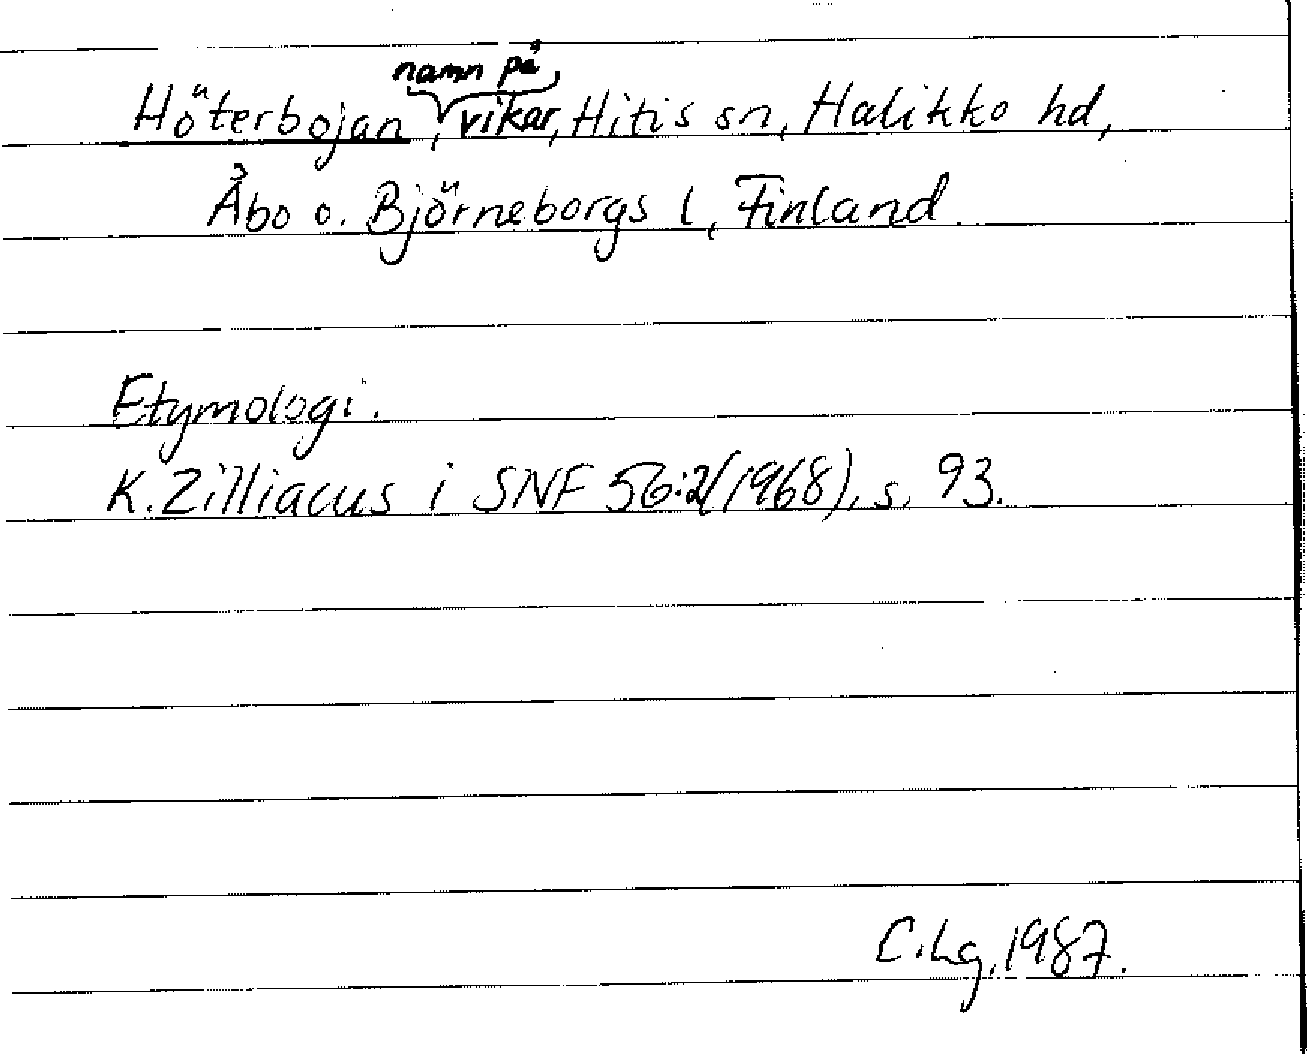 Höterbojan, namn på vikar, Hitis sn, Halikko hd,
Åbo o. Björneborgs l, Finland.
Etymologi.
K. Zilliacus i SNF 56:2(1968), s. 93.
C.Lg. 1987.